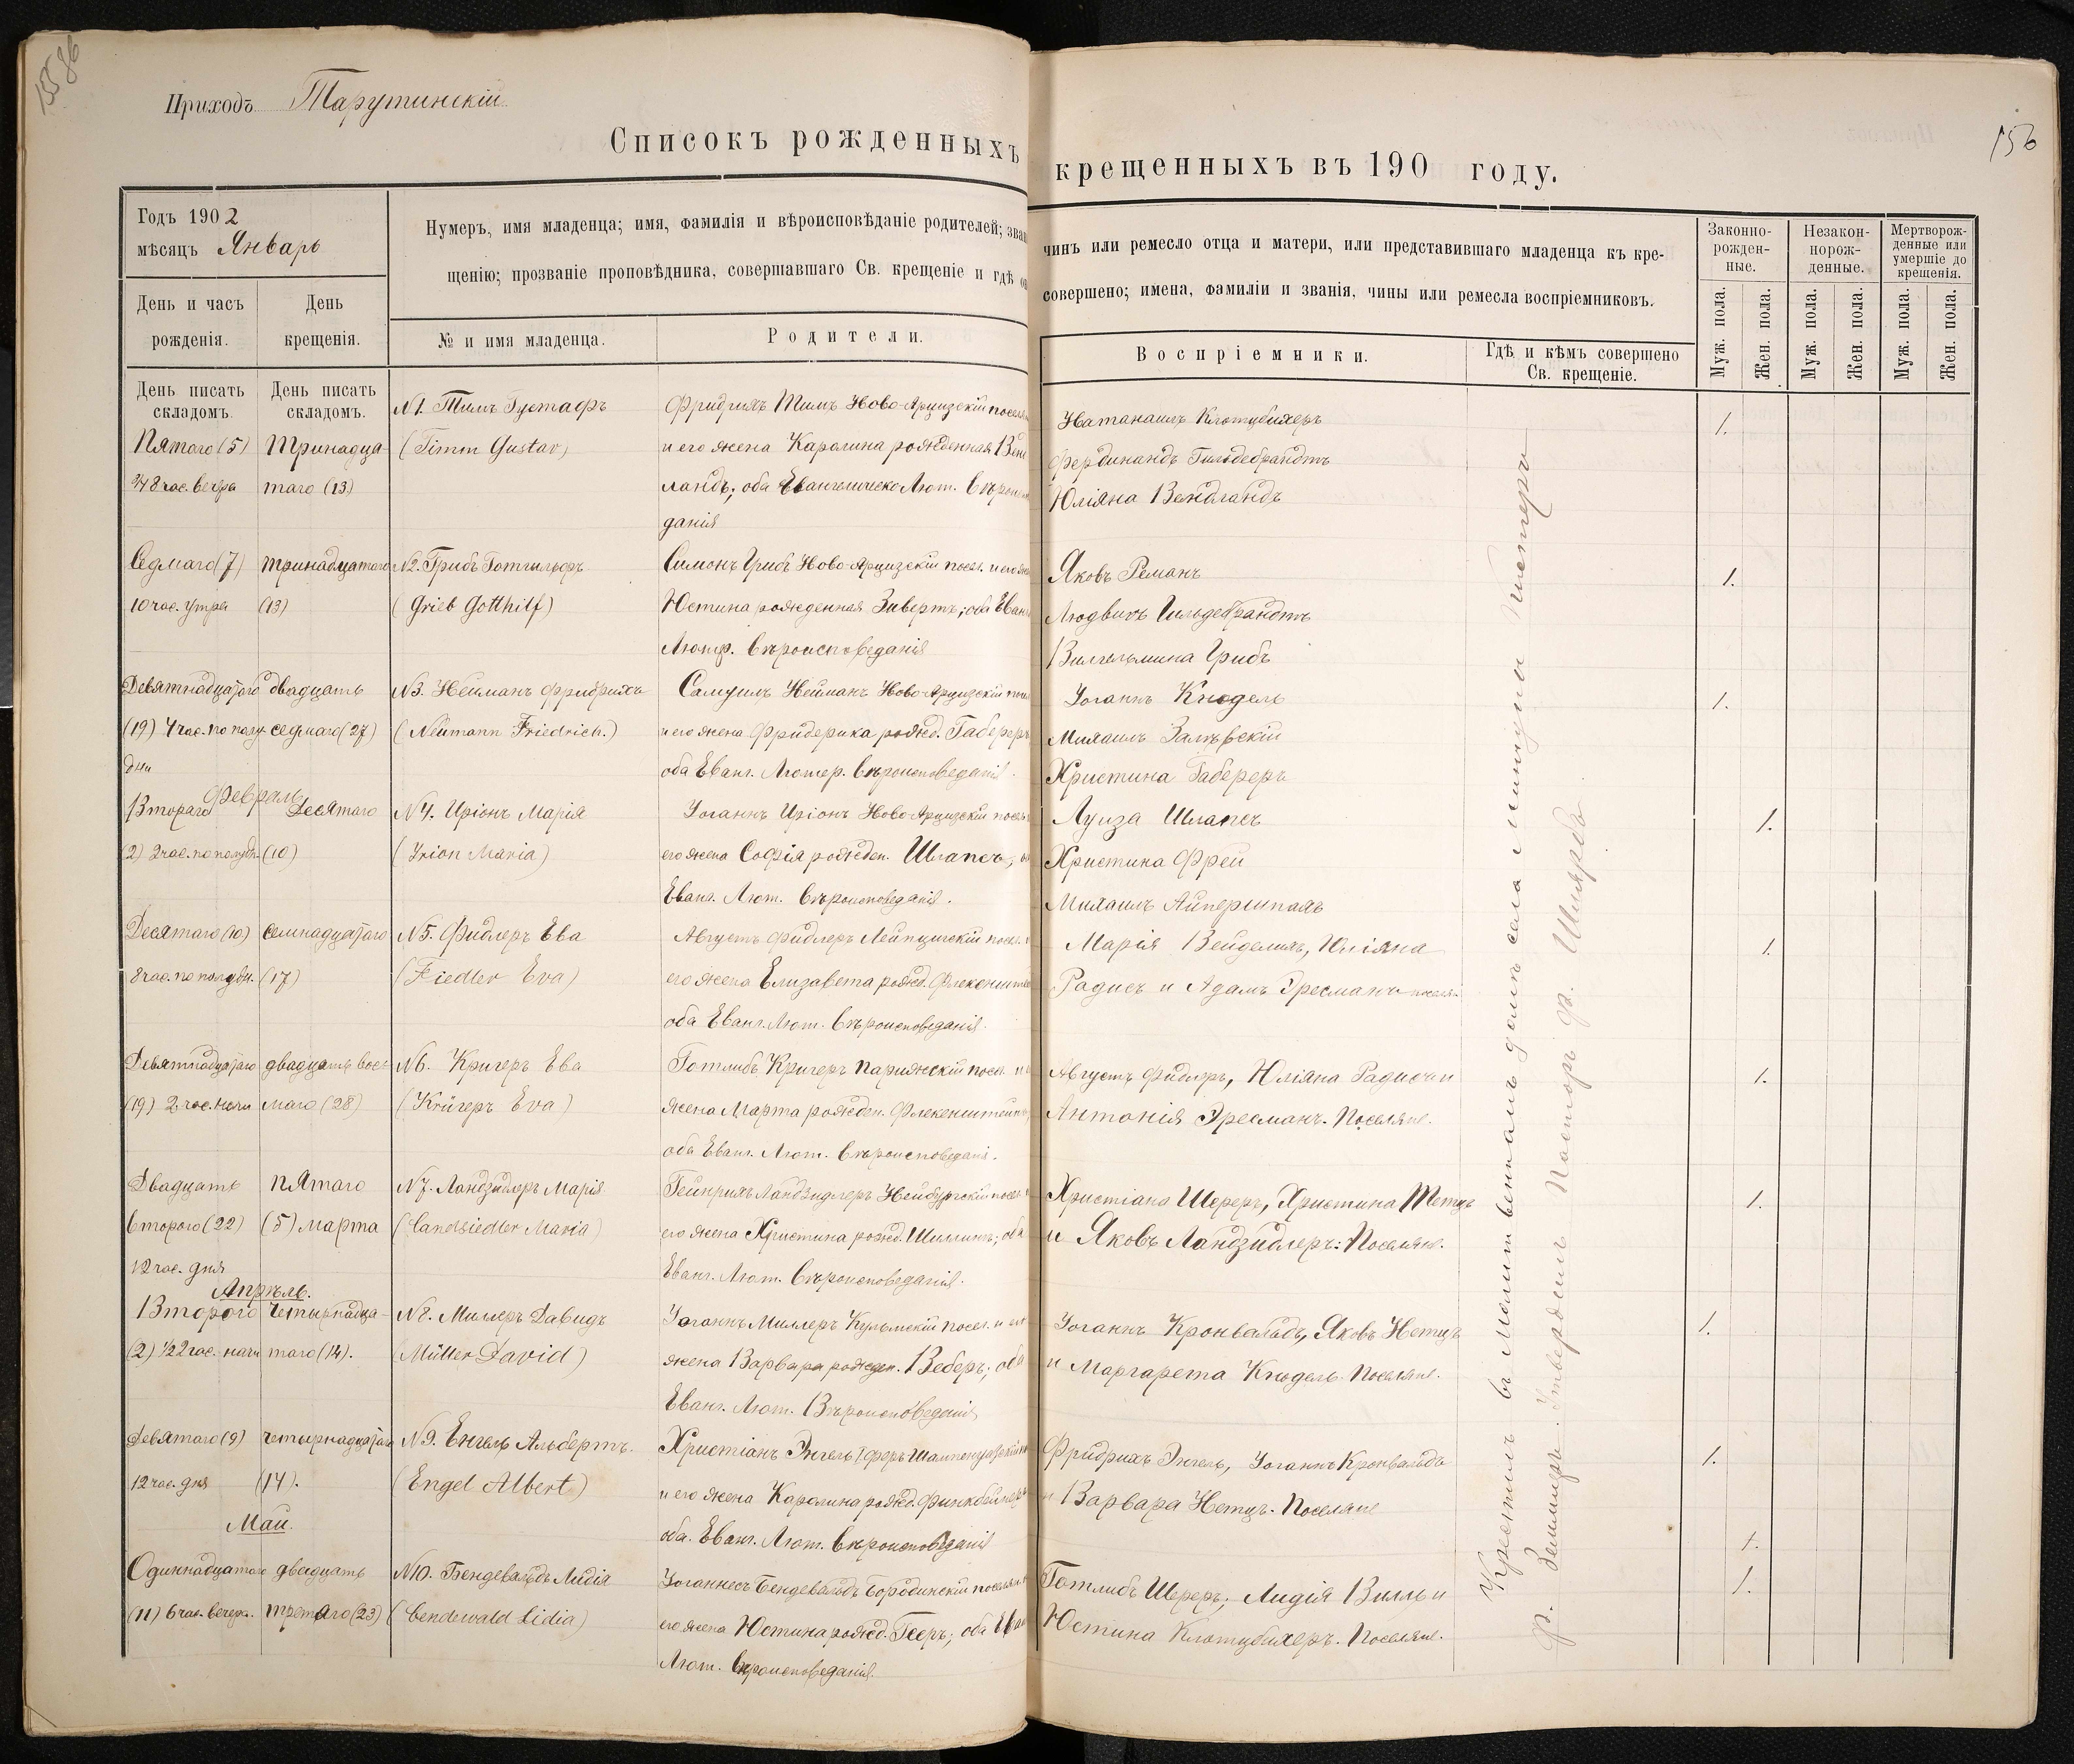 155 об
Приходъ Тарутинскій
Списокъ рожденныхъ
Годъ 1902
мѣсяцъ Январь
Нумеръ, имя младенца; имя, фамилія и вѣроисповѣданіе родителей; зва
щенію; прозваніе проповѣдника, совершавшаго Св. крещеніе и гдѣ
День и часъ рожденія.
День крещенія.
№ и имя младенца.
Родители.
День писать складомъ.
День писать складомъ.
Пятаго (5)
3/4 8 час. вечера
Тринадца-
таго (13)
N1. Тимъ Густафъ
(Timm Gustav)
Фридрихъ Тимъ Ново-Арцизскій посел
и его жена Каролина рожденная Венд
ландъ; оба Евангелическо Лют. Вѣроиспо
данія
Седмаго (7)
10 час. утра
тринадцатаго
(13)
N2. Грибъ Готгильфъ
(Grieb Gotthilf)
Симонъ Грибъ Ново-Арцизскій посел. и его жена
Юстина рожденная Зивертъ; оба Еван
Лютер. Вѣроисповеданія
Девятнадцатаго
(19) 4 час. по полу-
дни
двадцать
седмаго (27)
N3. Нейманъ Фридрихъ
(Neümann Friedrich.)
Самуилъ Нейманъ Ново-Арцизскій посел
и его жена Фридерика рожд. Габереръ
оба Еванг. Лютер. Вѣроисповеданія.
Февраль
Втораго
(2) 3 час. по полудн.
Десятаго
(10)
N4. Иріонъ Марія
(Irion Maria)
Іоганнъ Иріонъ Ново-Арцизскій посел
его жена Софія рожден. Шлапсъ;
Еванг. Лют. Вѣроисповеданія.
Десятаго (10)
8 час. по полудн.
Семнадцатаго
(17)
N5. Фидлеръ Ева
(Fiedler Eva)
Августъ Фидлеръ Лейпцигскій посел.
его жена Елизавета рожд. Флекенште
оба Еванг. Лют. Вѣроисповеданія.
Девятнадцатаго
(19) 2 час. ночи
двадцать вось-
маго (28)
N6. Кригеръ Ева
(Krügeръ Eva)
Готлибъ Кригеръ Парижскій посел. и
жена Марта рожден. Флекенштейнъ
оба Еванг. Лют. Вѣроисповедані.
Двадцать
второго (22)
12 час. дня
пятаго
(5) марта
N7. Ландзидлеръ Марія
(Landsiedler Maria)
Гейнрихъ Ландзидлеръ Нейбургскій посел
его жена Христина рожд. Шиллингъ; оба
Еванг. Лют. Вѣроисповеданія.
Апрѣль.
Второго
(2) 1/2 2 час. ночи
Четырнадца-
таго (14).
N8. Миллеръ Давидъ
(Müller David)
Іоганнъ Миллеръ Кульмскій посел. и его
жена Варвара рожден. Веберъ; оба
Еванг. Лют. Вѣроисповеданія
Девятаго (9)
12 час. дня
четырнадцатаго
(14).
N9. Енгель Альбертъ.
(Engel Albert)
Христіанъ Энгель Iферъ Шампенуазскій
и его жена Каролина рожд. Финкбейнеръ
оба. Еванг. Лют. Вѣроисповеданія
Май.
Одиннадцатаго
(11) 6 час. вечера.
двадцать
третяго (23)
N10. Бендевальдъ Лидія
(Bendewald Lidia)
Іоганнесъ Бендевальдъ Бородинскій поселян.
его жена Юстина рожд. Гееръ; оба Еван
Лют. Вѣроисповеданія.
156
крещенныхъ въ 190 году.
чинъ или ремесло отца и матери, или представившаго младенца къ кре-
совершено; имена, фамиліи и званія, чины или ремесла воспріемниковъ.
Воспріемники.
Гдѣ и кѣмъ совершено Св. крещеніе.
Законно-рожден-ные.
Незакон-норож-денные.
Мертворож-денные или умершіе до крещенія.
Муж. пола.
Жен. пола.
Муж. пола.
Жен. пола.
Муж. пола.
Жен. пола.
Натанаилъ Клотцбихеръ
1.
Фердинандъ Гильдебрандтъ
Юліяна Вендландъ
Яковъ Реманъ
1.
Людвигъ Гильдебрандтъ
Вильгельмина Грибъ
Іоганнъ Кнодель
1.
Михаилъ Залѣвскій
Христина Габереръ
Луиза Шлапсъ
1.
Христина Фрей
Михаилъ Айпершпахъ
Марія Вейделихъ, Юліяна
1.
Радисъ и Адамъ Эресманъ поселян.
Августъ Фидлеръ, Юліяна Радисъ и
1.
Антонія Эресманъ. Поселяне.
Христіана Шереръ, Христина Метцъ
1.
и Яковъ Ландзидлеръ: Поселяне.
Іоганнъ Кронвальдъ, Яковъ Нетцъ
1.
и Маргарета Кнодель. Поселяне.
Фридрихъ Энгель, Іоганнъ Кронвальдъ
1.
и Варвара Нетцъ. Поселяне
1.
Готлибъ Шереръ, Лидія Вилль и
1.
Юстина Клотцбихеръ. Поселяне.
Крестилъ въ Молитвенномъ домѣ села
Утвердилъ Пасторъ